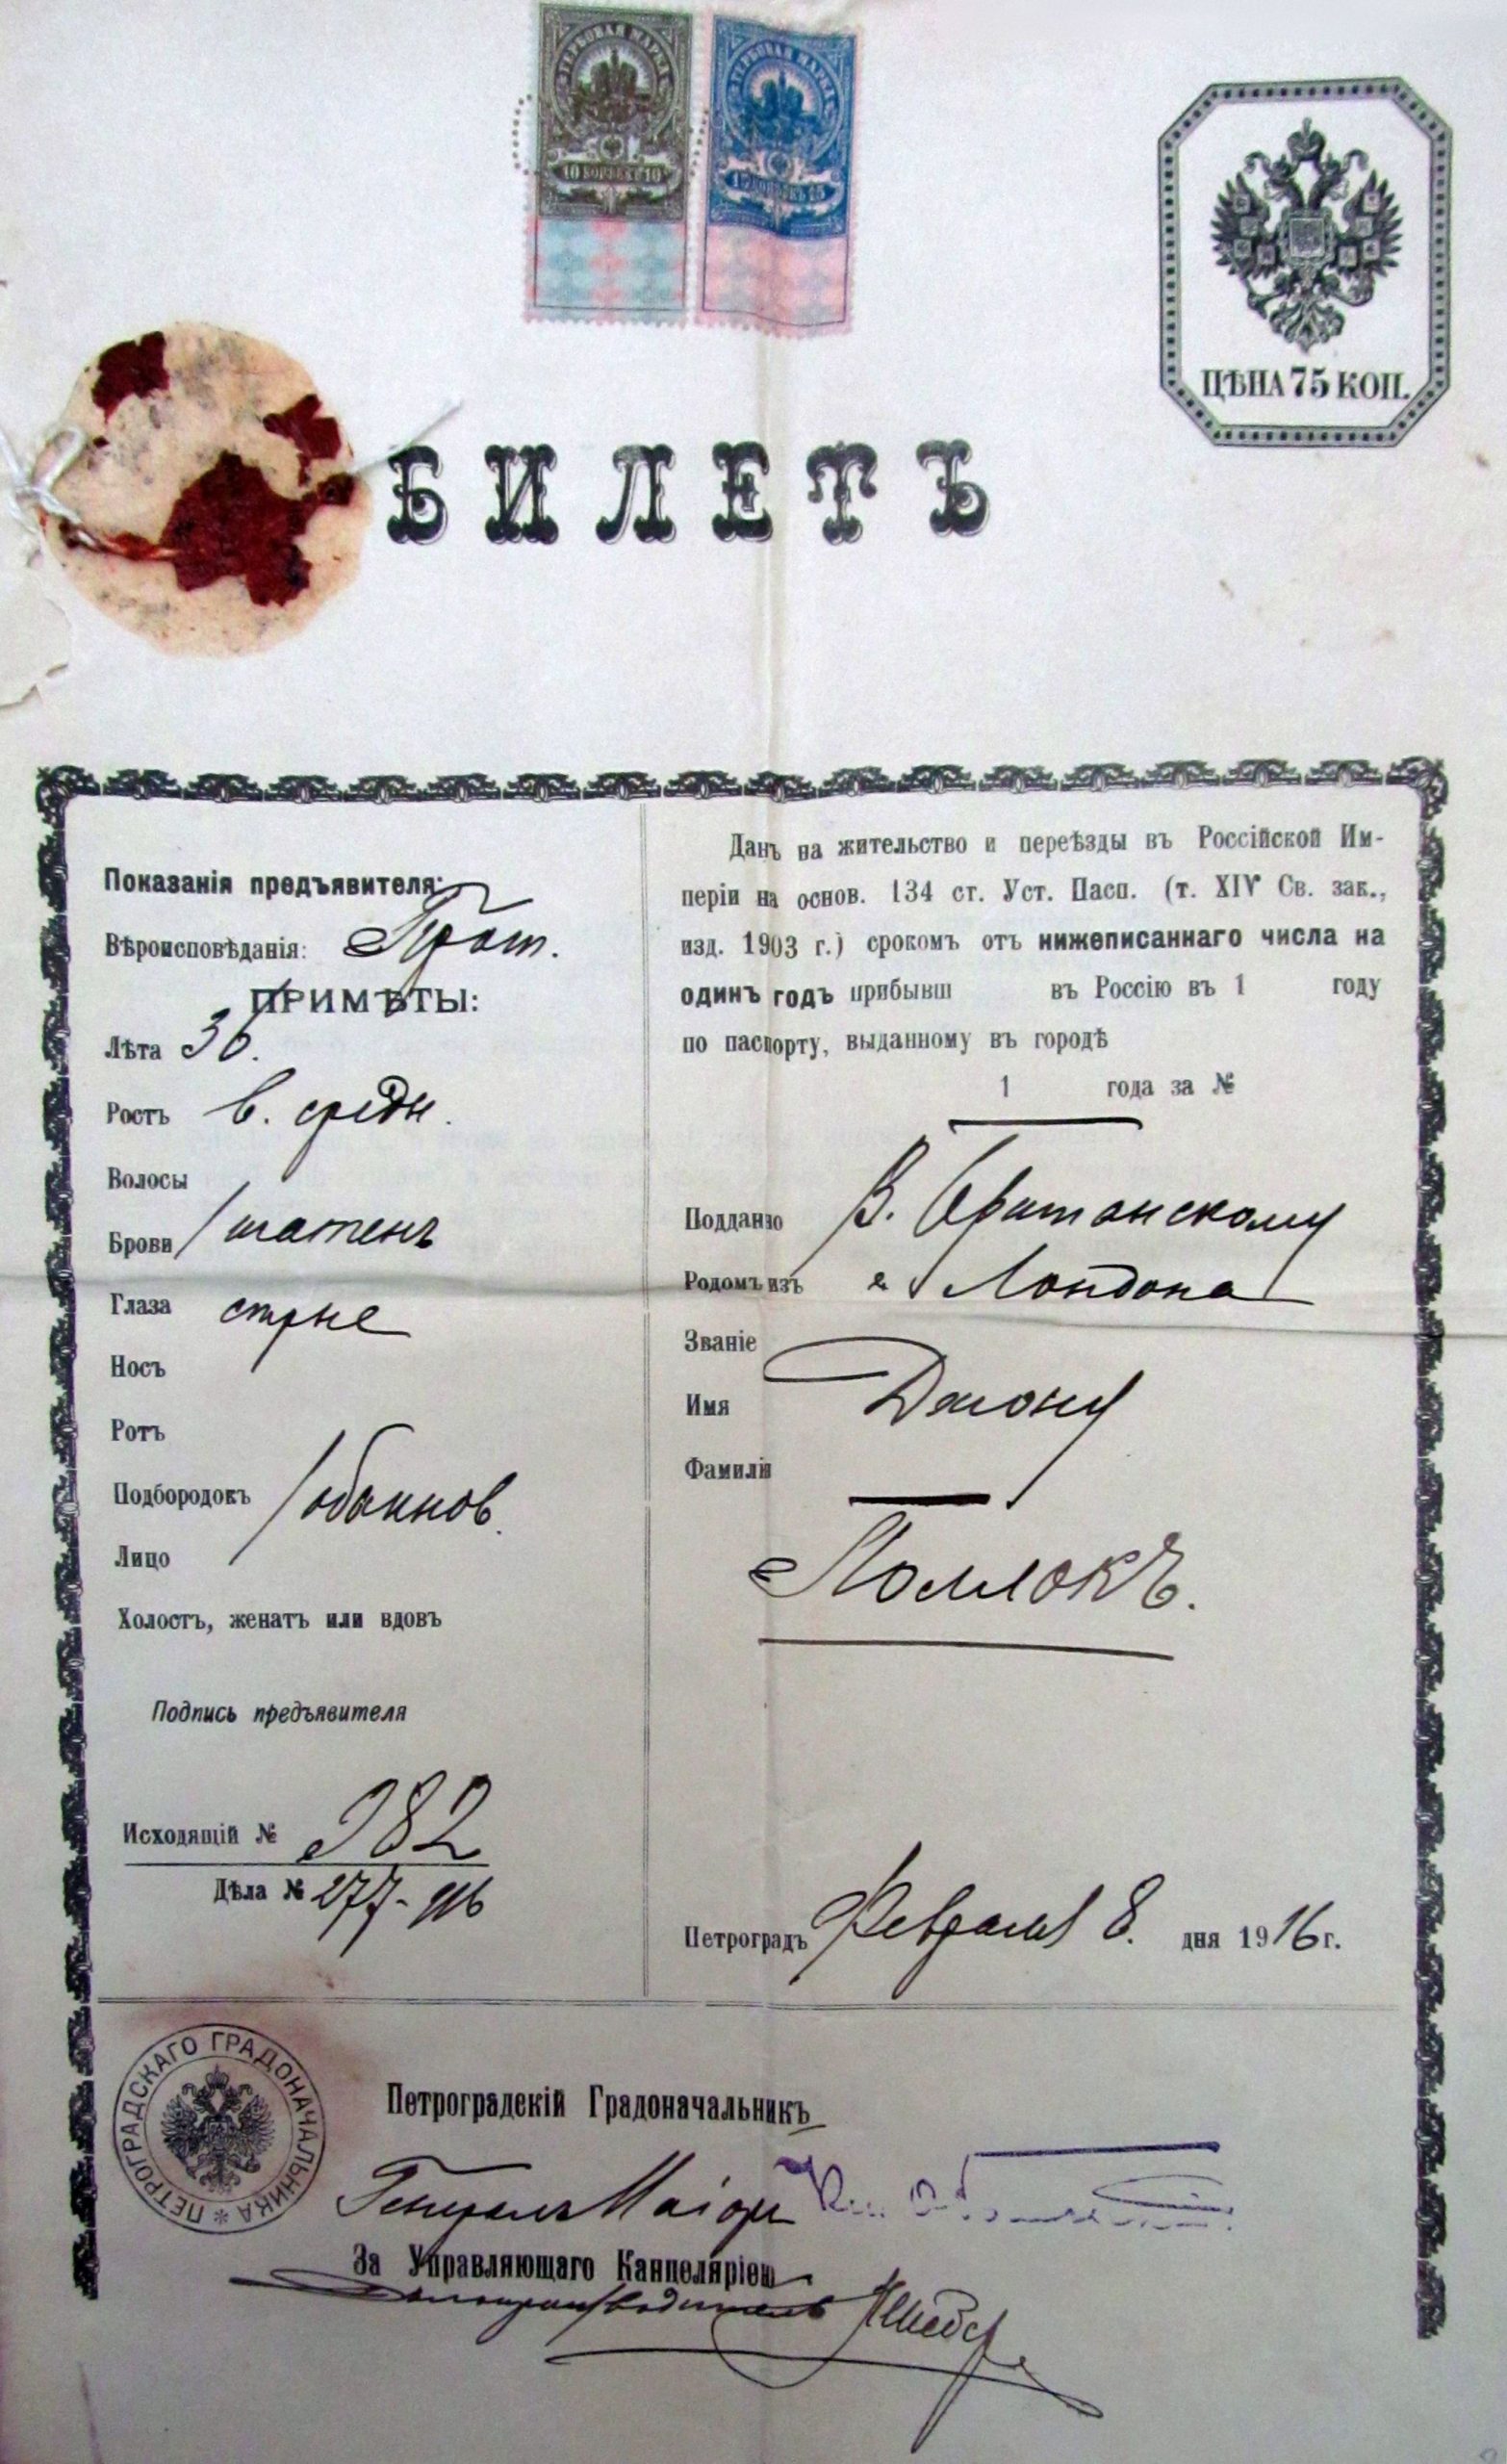 ГЕРБОВАЯ МАРКА
10 КОПѢЕКЪ 10
ГЕРБОВАЯ МАРКА
15 КОПѢЕКЪ 15
ЦѢНА 75 КОП.
БИЛЕТЪ
Показанія предъявителя:
Вѣроисповѣданія: Прот.
ПРИМѢТЫ:
Лѣта 36.
Ростъ в. средн.
Волосы
Брови шатенъ
Глаза сѣрые
Носъ
Ротъ
Подбородокъ обыкнов.
Лицо
Холостъ, женатъ или вдовъ
Подпись предъявителя
Исходящій № 982
Дѣла № 277-916
Данъ на жительство и переѣзды въ Россійской Им-
періи на основ. 134 ст. Уст. Пасп. (т. XIV Св. зак.,
изд. 1903 г.) срокомъ отъ нижеписаннаго числа на
одинъ годъ прибывш въ Россію въ 1 году
по паспорту, выданному въ городѣ
1 года за №
Подданно В. Британскому
Родомъ изъ г. Лондона
Званіе
Имя Джону
Фамилія
Поллокъ.
Петроградъ Февраля 8. дня 1916 г.
ПЕТРОГРАДСКАГО ГРАДОНАЧАЛЬНИКА
Петроградскій Градоначальникъ
Генералъ Маіоръ Кн. Оболенскій
За Управляющаго Канцеляріею
Дѣлопроизводитель